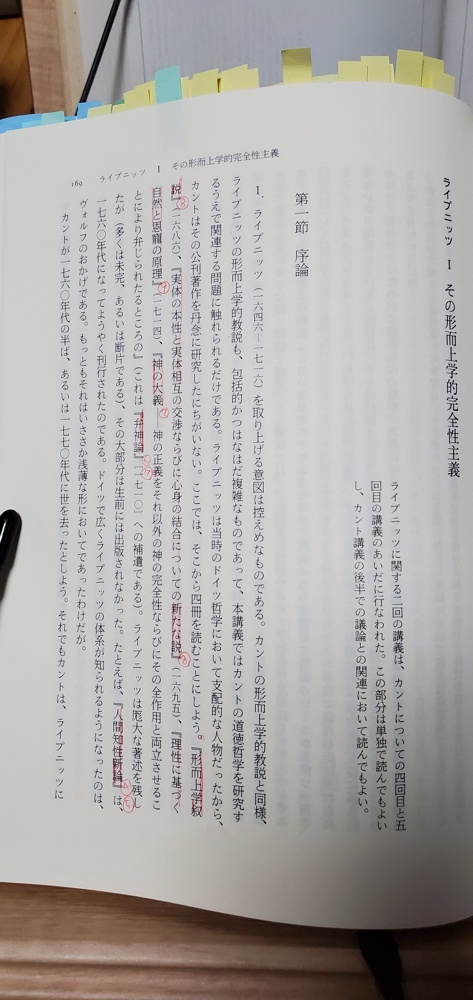 ライプニッツ Ⅰ その形而上学的完全性主義
ライプニッツに関する二回の講義は、カントについての四回目と五
回目の講義のあいだに行なわれた。この部分は単独で読んでもよい
し、カント講義の後半での議論との関連において読んでもよい。
第一節 序論
1. ライプニッツ(一六四六―一七一六)を取り上げる意図は控えめなものである。カントの形而上学的教説と同様、
ライプニッツの形而上学的教説も、包括的かつはなはだ複雑なものであって、本講義ではカントの道徳哲学を研究す
るうえで関連する問題に触れられるだけである。ライプニッツは当時のドイツ哲学において支配的な人物だったから、
カントはその公刊著作を丹念に研究したにちがいない。ここでは、そこから四冊を読むことにしよう。『形而上学叙
説』(一六八六)、『実体の本性と実体相互の交渉ならびに心身の結合についての新たな説』(一六九五)、『理性に基づく
自然と恩寵の原理』(一七一四)、『神の大義――神の正義をそれ以外の神の完全性ならびにその全作用と両立させるこ
とにより弁じられたるところの』(これは『弁神論』(一七一〇)への補遺である)。ライプニッツは厖大な著述を残し
たが(多くは未完、あるいは断片である)、その大部分は生前には出版されなかった。たとえば、『人間知性新論』は、
一七六〇年代になってようやく刊行されたのである。ドイツで広くライプニッツの体系が知られるようになったのは、
ヴォルフのおかげである。もっともそれはいささか浅薄な形においてであったわけだが。
カントが一七六〇年代の半ば、あるいは一七七〇年代に世を去ったとしよう。それでもカントは、ライプニッツに
169 ライプニッツ Ⅰ その形而上学的完全性主義